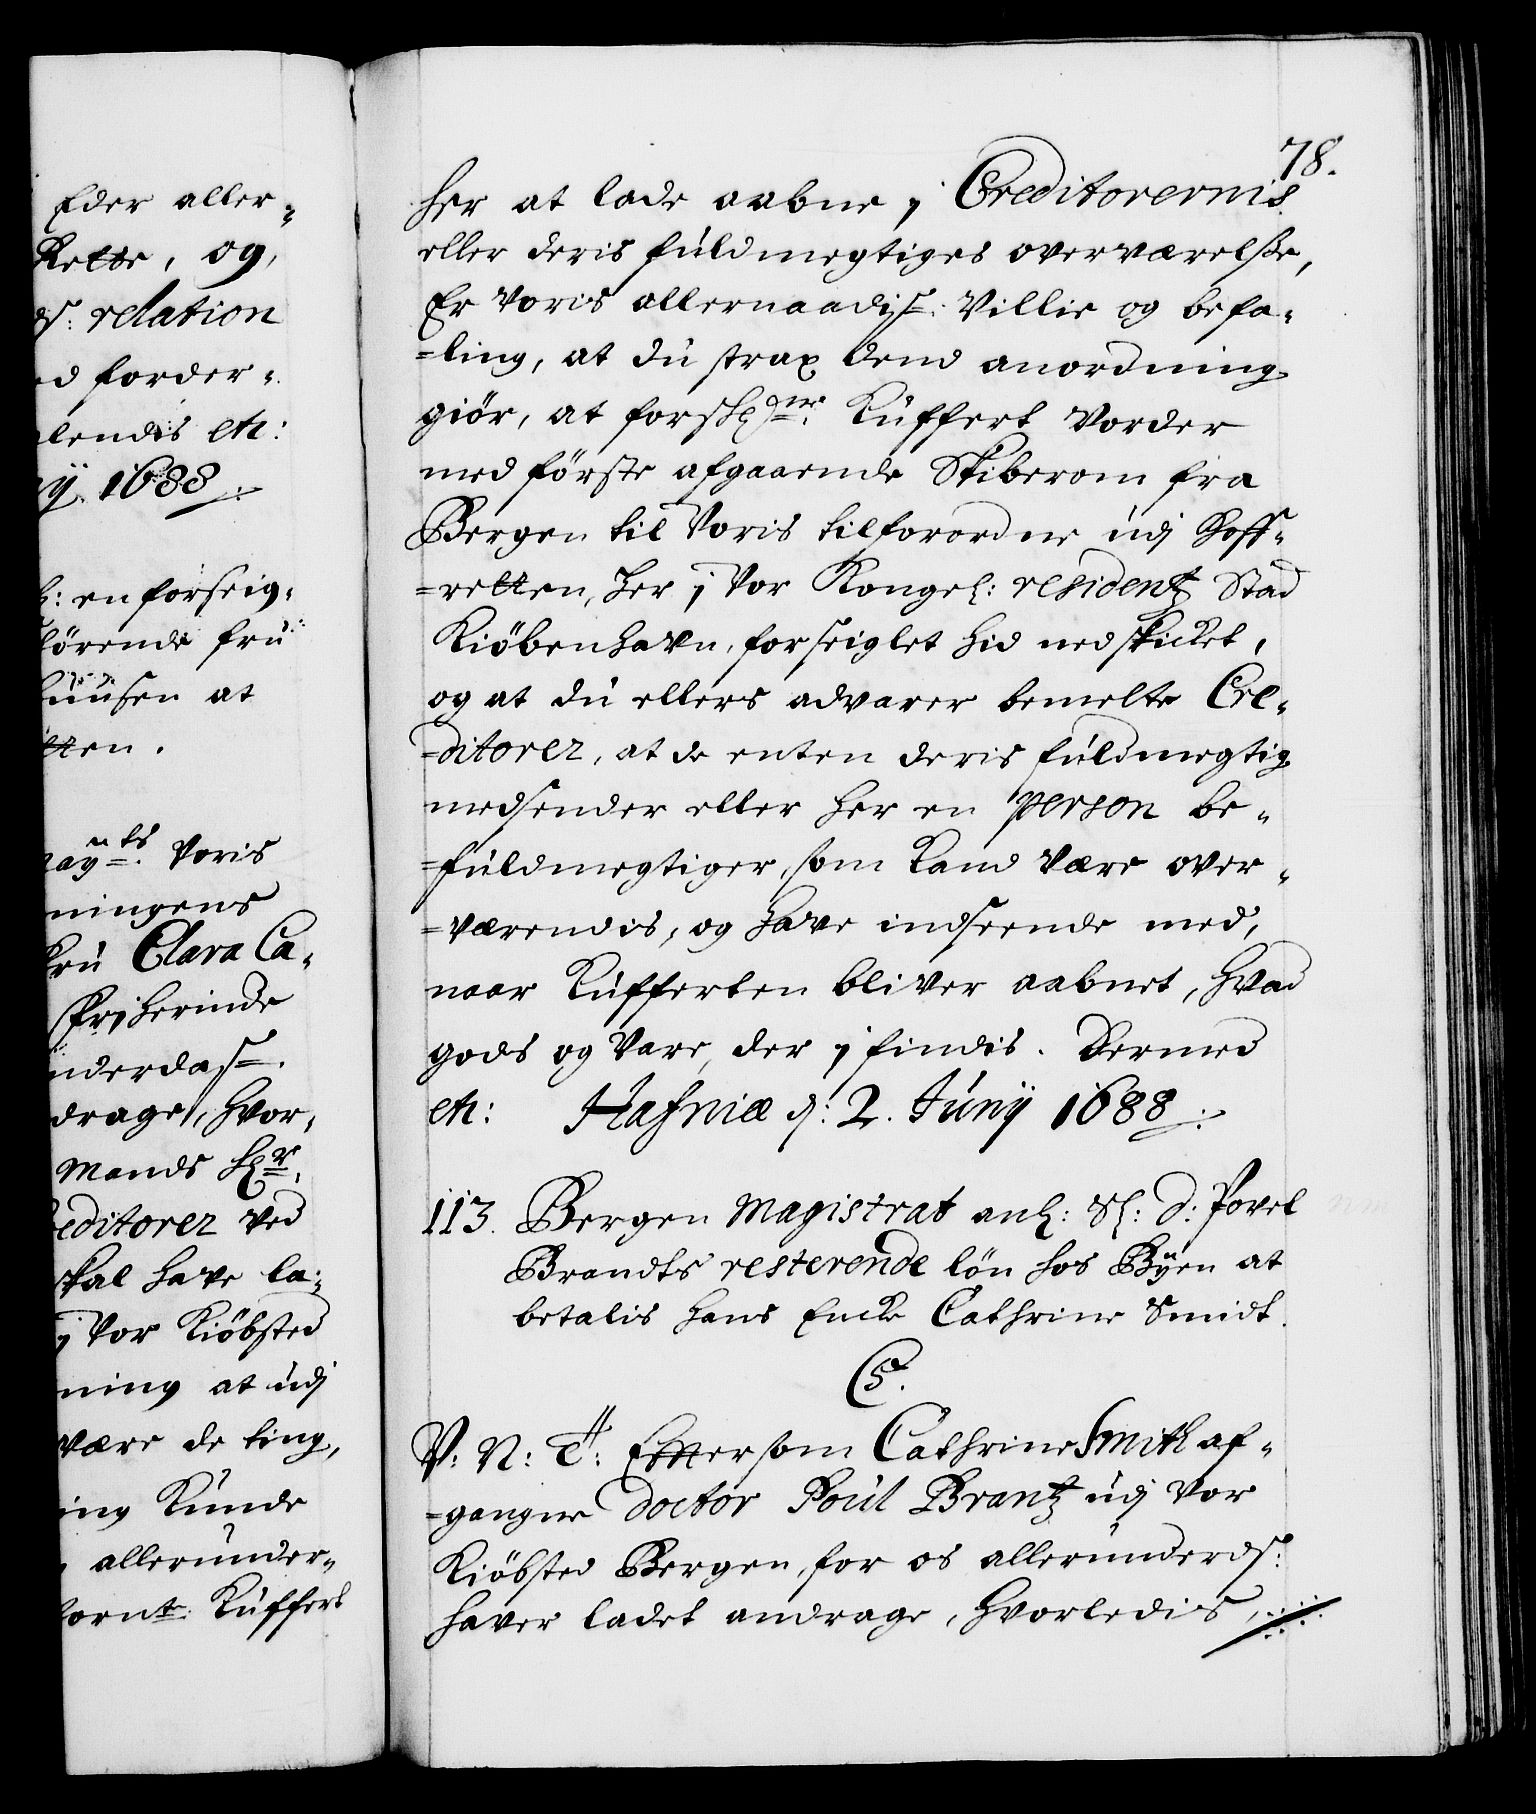 Eder aller-
Rette, og,
ds: relation
ed forder-
lendis etc:
ij 1688
l: en forseig-
hörende fru
huusen at
tten.
mayts: Voris
ningens
fru Clara Ca-
Friherinde
underdast.
drage, hvor-
Mands Hr.
Creditorer ved
skal have la-
j Vor Kiöbsted
ning at udj
være de ting,
ing kunde
allerunder-
fornte: Kuffert
78.
her at lade aabne j Creditorernis
eller deris fuldmegtiges overværelse,
Er Voris allernaadist: Villie og befa-
=ling, at du strax dend anordning
giör, at forschrne: Kuffert vorder
med förste afgaaende Skiberom fra
Bergen til Voris tilforordne udj Hoff-
=retten, her j Vor Kongel: residentz Stad
Kiöbenhavn, forseiglet hid nedskicket,
og at du ellers advarer bemelte Cre-
=ditorer, at de enten deris fuldmegtig
nedsender eller her en person be-
=fuldmegtiger, som kand være over-
=værendis, og have indseende med,
naar Kufferten bliver aabnet, hvad
gods og Vare, der j findis. Dermed
etc: Hafniæ d: 2. Junij 1688
113. Bergen Magistrat anl: Sl: D: Povel
Brandts resterende lön hos Byen at
betalis hans Encke Cathrine Smidt.
C5.
V: N: T: Eftersom Cathrine Smith af-
=gangne Doctor Poul Brantz udj Vor
Kiöbsted Bergen, for os allerunderds:
haver ladet andrage, hvorledis,